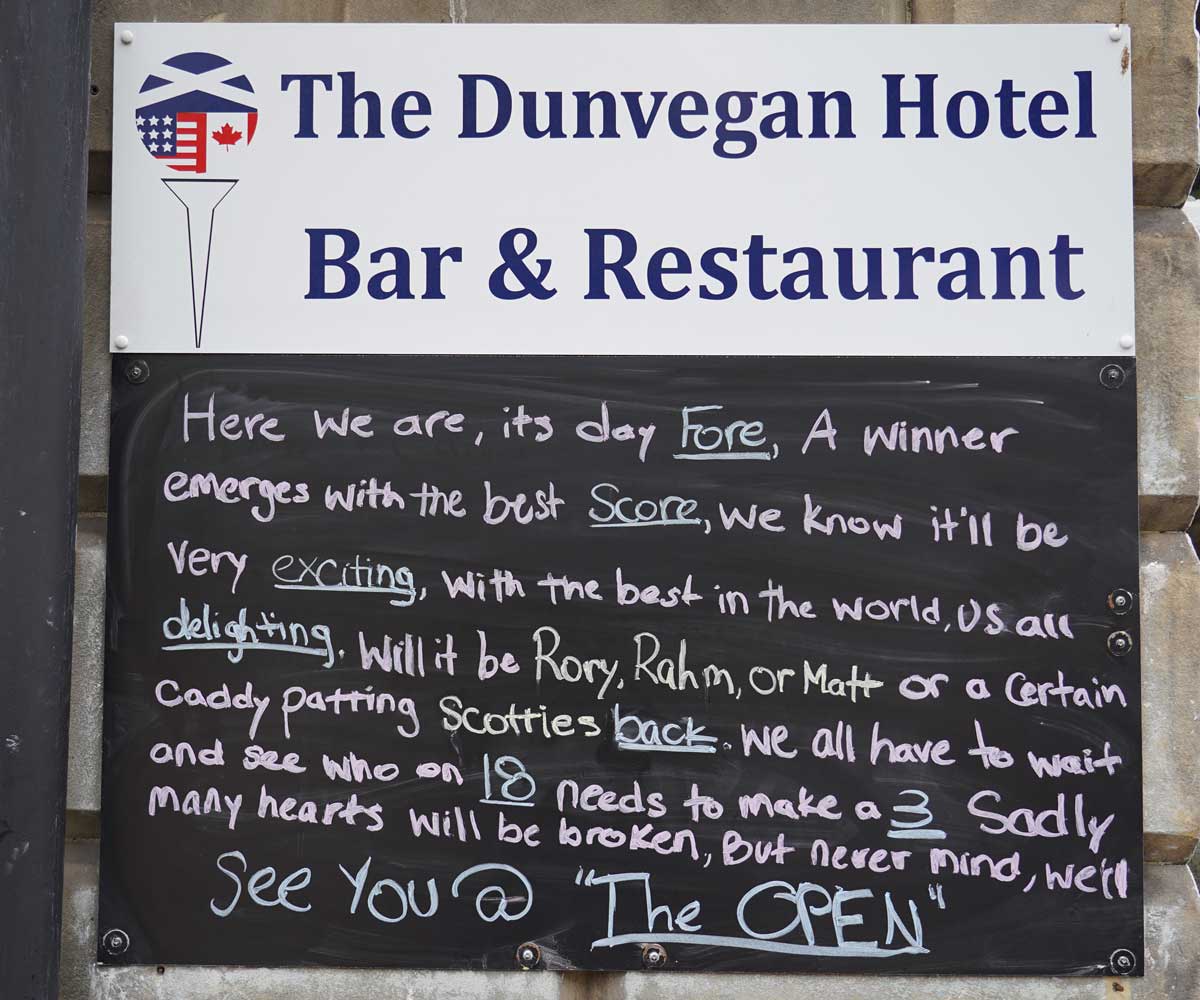 The Dunvegan Hotel
Bar & Restaurant
Here we are, its day Fore, A winner
emerges with the best Score, we know it'll be
very exciting, with the best in the world, us all
delighting. Will it be Rory, Rahm, or Matt or a certain
caddy patting Scotties back. we all have to wait
and see who on 18 needs to make a 3 Sadly
many hearts will be broken, But never mind, we'll
See You @ "The OPEN"